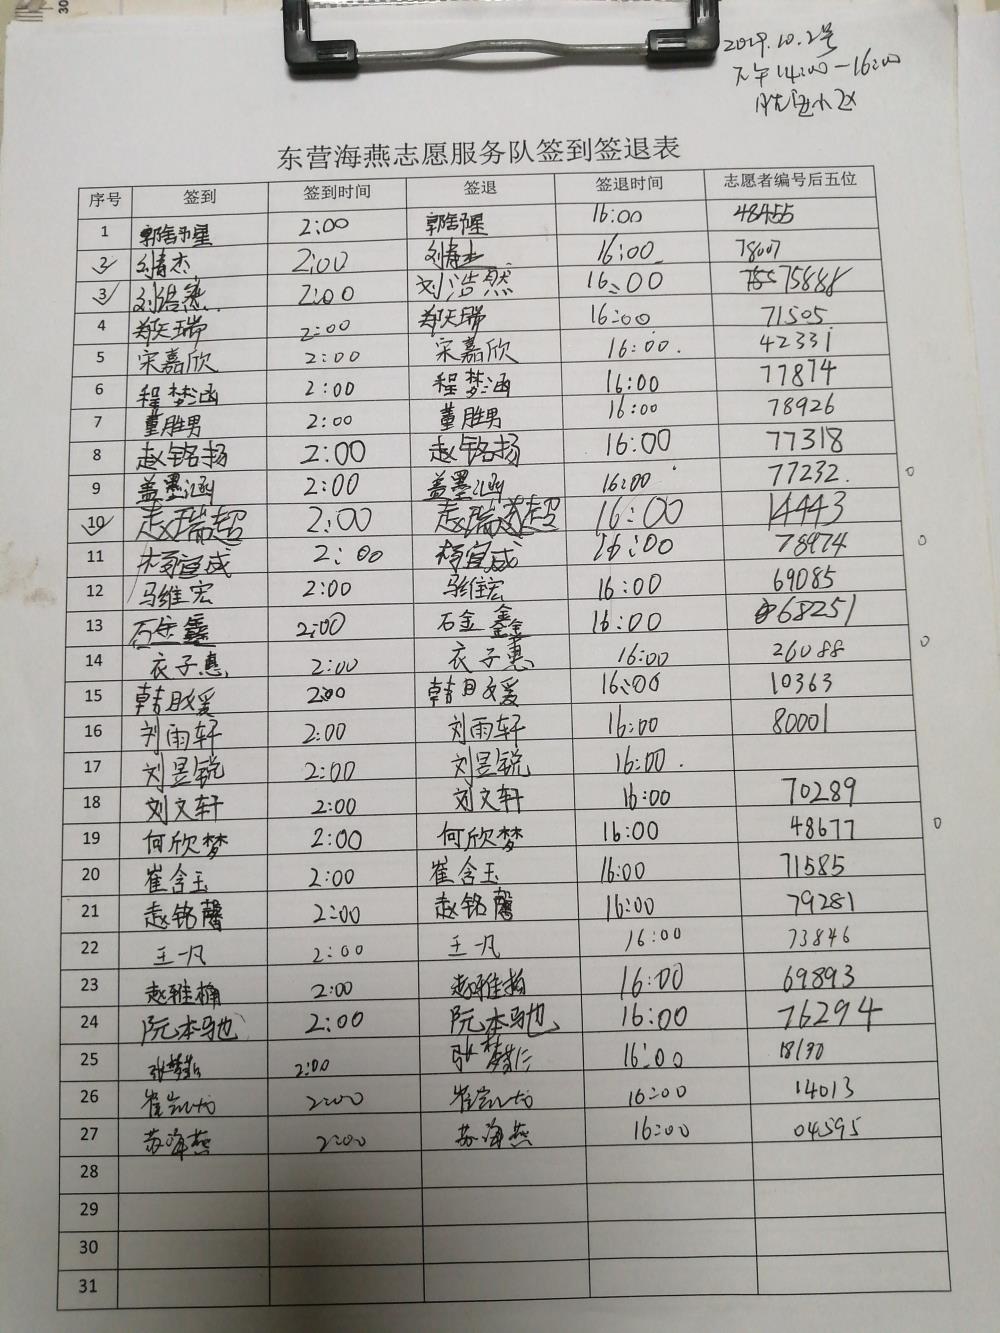 30
2019.10.2号
下午14:00-16:00
小区
东营海燕志愿服务队签到签退表
序号 签到 签到时间 签退 签退时间 志愿者编号后五位
1 2:00 16:00 48455
2 刘青杰 2:00 刘青杰 16:00 78007
3 刘浩然 2:00 刘浩然 16:00 75888
4 郑天瑞 2:00 郑天瑞 16:00 71505
5 宋嘉欣 2:00 宋嘉欣 16:00. 42331
6 程梦涵 2:00 程梦涵 16:00 77874
7 董胜男 2:00 董胜男 16:00 78926
8 赵铭扬 2:00 赵铭扬 16:00 77318
9 盖墨涵 2:00 盖墨涵 16:00 77232.
10 赵瑞超 2:00 赵瑞超 16:00 14443
11 杨宜成 2:00 杨宜成 16:00 78974
12 马维宏 2:00 马维宏 16:00 69085
13 石金鑫 2:00 石金鑫 16:00 68251
14 衣子惠 2:00 衣子惠 16:00 26088
15 2:00 16:00 10363
16 刘雨轩 2:00 刘雨轩 16:00 80001
17 刘昱锐 2:00 刘昱锐 16:00.
18 刘文轩 2:00 刘文轩 16:00 70289
19 何欣梦 2:00 何欣梦 16:00 48677
20 崔含玉 2:00 崔含玉 16:00 71585
21 赵铭馨 2:00 赵铭馨 16:00 79281
22 王一凡 2:00 王一凡 16:00 73846
23 2:00 16:00 69893
24 阮本驰 2:00 阮本驰 16:00 76294
25 2:00 16:00 18190
26 2:00 16:00 14013
27 苏海燕 2:00 苏海燕 16:00 04595
28
29
30
31